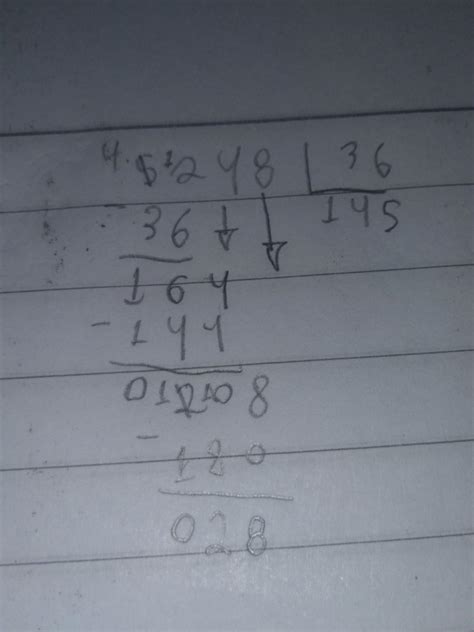 4. 5¹248 | 36
- 36 145
164
- 144
012108
- 180
028